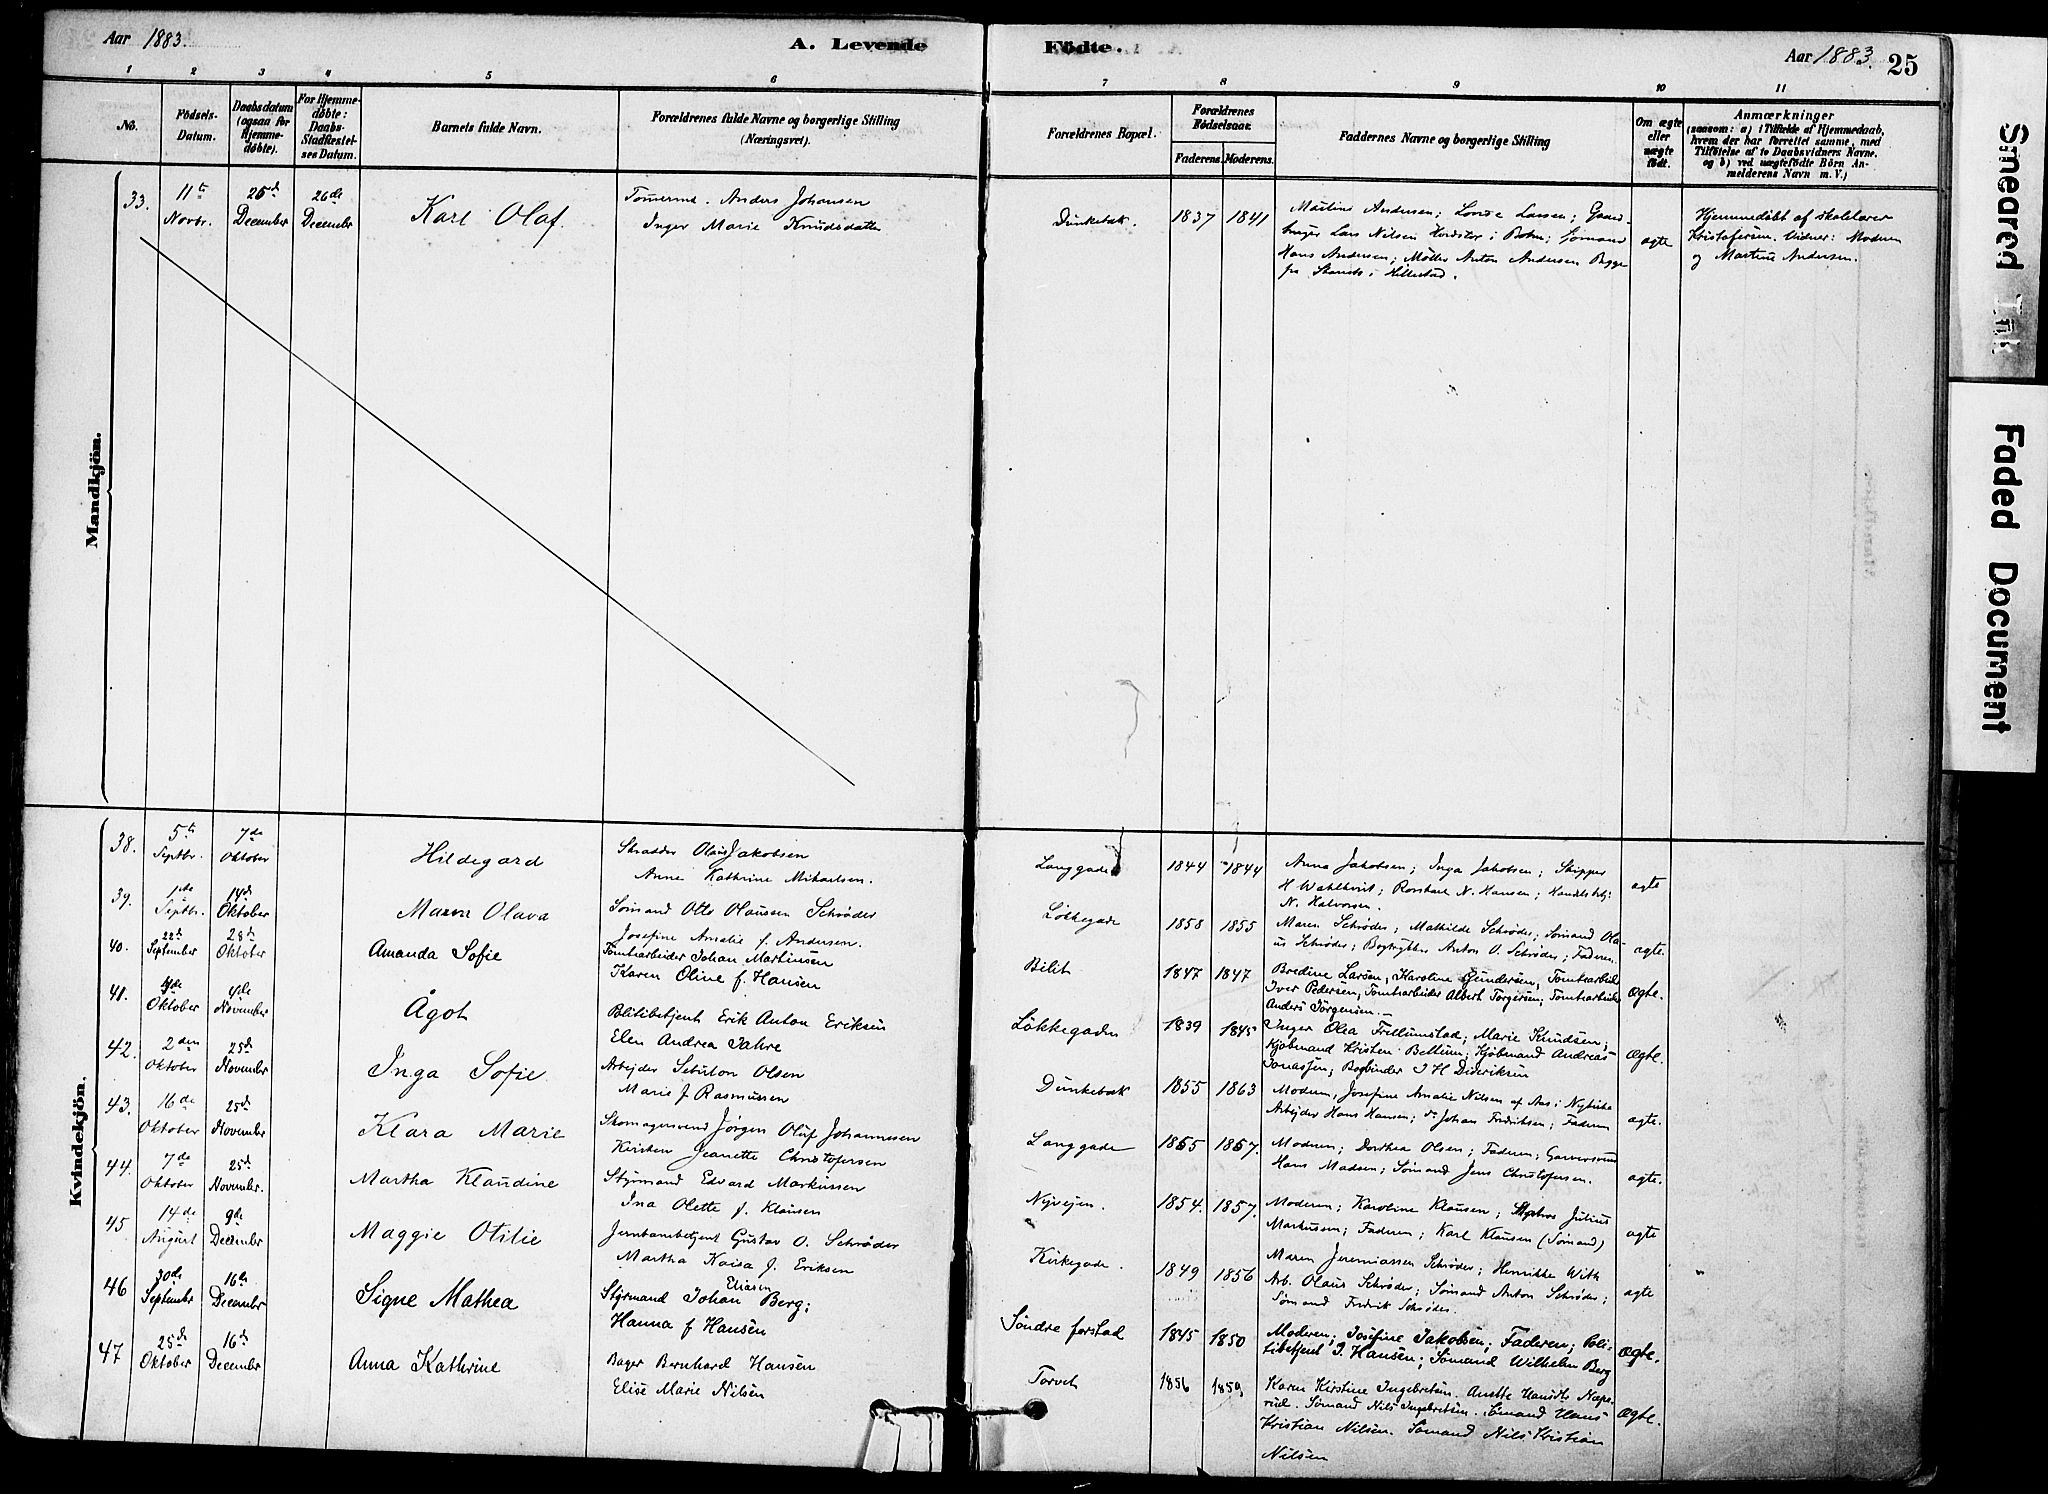 Aar 1883.
A. Levende
Födte.
Aar 1883.
25
1 2 3 4 5 6 7 8 9 10 11
No.
Födsels-Datum.
Daabsdatum (ogsaa for Hjemmedöbte).
For Hjemmedöbte: Daabs-Stadfæstelses Datum.
Barnets fulde Navn.
Forældrenes fulde Navne og borgerlige Stilling (Næringsvei).
Forældrenes Bopæl.
Forældrenes Födselsaar.
Faderens. Moderens.
Faddernes Navne og borgerlige Stilling
Om ægte eller uægte födt.
Anmærkninger
(saasom: a) i Tilfælde af Hjemmedaab,
hvem der har forrettet samme, med
Tilföielse af to Daabsvidners Navne,
og b) ved uægtefödte Börn Anmelderens Navn m. V.)
Mandkjön.
33. 11te Novbr. 26d December 26de December
Karl Olaf.
Anders Johansen
Inger Marie Knudsdatter
Dunkebæk. 1837 1841
Martine Andersen; Larsen; Gaardbruger Lars Nilsen i Botne; Sømand
Hans Andersen; Møller Anton Andersen Bugge
i Hillestad.
ægte
Hjemmedöbt af skolelærer
Kristofersen. Vidner: Moderen
og Martine Andersen.
Kvindekjön.
38. 5te Septbr. 7de Oktober
Hildegard
Skrædder Olaus Jakobsen
Anne Kathrine Mikaelsen.
Langgade 1844 1844
Anna Jakobsen; Inga Jakobsen; Skipper
H Wahlkvist; N. Hansen;
N. Halvorsen.
ægte
39. 1ste Septbr. 14de Oktober
Maren Olava
Sømand Otto Olaussen Schrøder
Josefine Amalie f. Andersen.
Løkkegade 1858 1855
Maren Schrøder; Mathilde Schrøder; Sømand Olaus
Schrøder; Bogtrykker Anton O. Schrøder; Faderen.
ægte.
40. 22de September 28de Oktober
Amanda Sofie
Tomtearbeider Johan Martinsen
Karen Oline f. Hansen
Bilit 1847 1847
Bredine Larsen; Karoline Gundersen; Tomtearbeider
Iver Pedersen; Tomtearbeider Albert Torgersen; Tomtearbeider
Anders Jörgensen.
Ægte.
41. Oktober 4de November
Ågot
Politibetjent Erik Anton Eriksen
Elen Andrea Jahre
Løkkegaden 1839 1845
Inger Olea Frellumstad; Marie Knudsen;
Kjöbmand Kristen Bettum; Kjöbmand Andreas
Jonassen; Bogbinder J H Dideriksen
Ægte.
42. 2den Oktober 25de November
Inga Sofie
Arbejder Olsen
Marie f Rasmussen
Dunkebæk 1855 1863
Moderen, Josefine Amalie Nilsen af Aas i Nykirke
Arbejder Hans Hansen; do Johan Fredriksen; Faderen
ægte.
43. 16de Oktober 25de November
Klara Marie
Skomagersvend Jørgen Oluf Johannesen
Kirsten Jeanette Christofersen
Langgade 1855 1857.
Moderen; Dorthea Olsen; Faderen; Garversvend
Hans Madsen; Sømand Jens Christofersen.
ægte.
44. 7de Oktober 25de November.
Martha Klaudine
Styrmand Edvard Markussen
Ina Olette f. Klausen
Nyvejen. 1854. 1857.
Moderen; Karoline Klausen; Julius
Markussen; Faderen; Karl Klausen (Sømand)
ægte
45 14de August 9de December
Maggie Otilie
Jernbanebetjent Gustav O. Schrøder
Martha Kaisa f. Eriksen
Kirkegade. 1849 1856
Maren Jeremiassen Schrøder; Henrikke With
Arb. Olaus Schrøder; Sømand Anton Schrøder;
Sømand Fredrik Schrøder.
ægte
46 30de September 16de December
Signe Mathea
Styrmand Johan Eliasen Berg;
Hanna f Hansen
Söndre forstad 1845 1850
Moderen; Josefine Jakobsen; Faderen; Politibetjent
J. Hansen; Sømand Wilhelm Berg
Ægte.
47 25de Oktober 16de December
Anna Kathrine
Bager Bernhard Hansen
Elise Marie Nilsen
Torvet 1856 1859
Karen Kirstine Ingebretsen. Anette Hansdtr Næperud.
Sømand Nils Ingebretsen. Sømand Hans
Kristian Nilsen. Sømand Nils Kristian
Nilsen
Ægte.
Smeared Ink
Faded Document